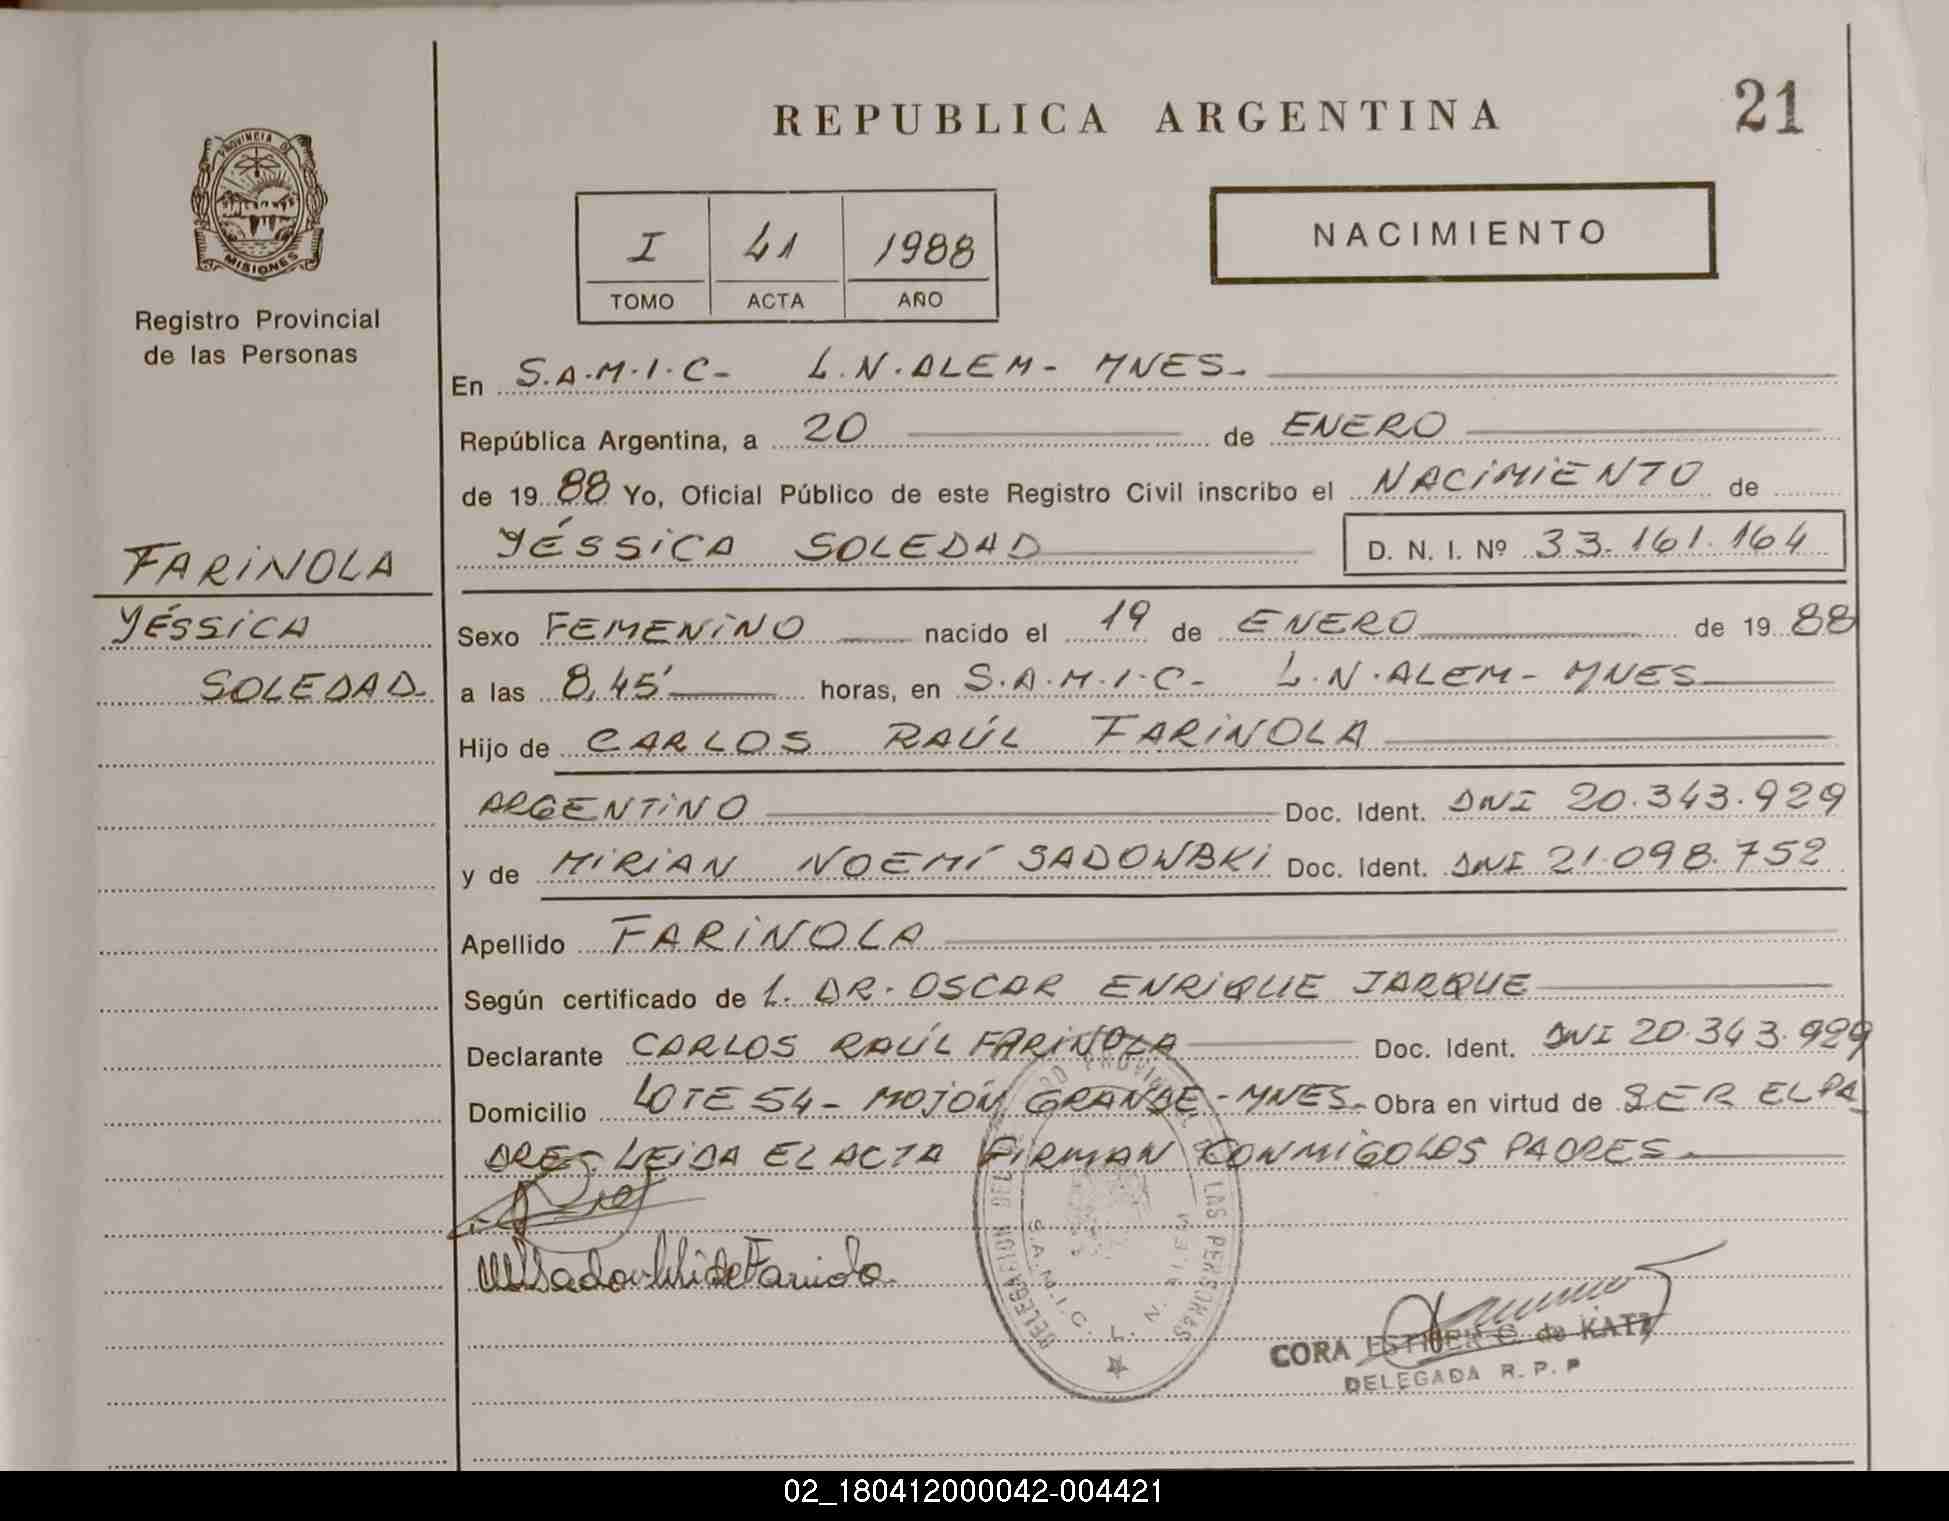 REPUBLICA ARGENTINA
21
PROVINCIA DE
MISIONES
Registro Provincial
de las Personas
I 41 1988
TOMO ACTA AÑO
NACIMIENTO
En S.A.M.I.C- L.N.ALEM- MNES.
República Argentina, a 20 de ENERO
de 1988 Yo, Oficial Público de este Registro Civil inscribo el NACIMIENTO de
YÉSSICA SOLEDAD D. N. I. Nº 33.161.164
FARINOLA
YÉSSICA
SOLEDAD
Sexo FEMENINO nacido el 19 de ENERO de 1988
a las 8,45' horas, en S.A.M.I.C- L.N.ALEM- MNES
Hijo de CARLOS RAÚL FARINOLA
ARGENTINO Doc. Ident. DNI 20.343.929
y de MIRIAN NOEMÍ SADOWSKI Doc. Ident. DNI 21.098.752
Apellido FARINOLA
Según certificado de L. DR. OSCAR ENRIQUE JARQUE
Declarante CARLOS RAÚL FARINOLA Doc. Ident. DNI 20.343.929
Domicilio LOTE 54- MOJÓN GRANDE-MNES. Obra en virtud de SER EL PA
DRE- LEIDA EL ACTA FIRMAN CONMIGO LOS PADRES.
MNSadowski de Farinola
DELEGACION DEL PROVINCIAL LAS PERSONAS
S.A.M.I.C. L. N. ALEM
CORA ESTHER C. de KATZ
DELEGADA R.P.P
02_180412000042-004421